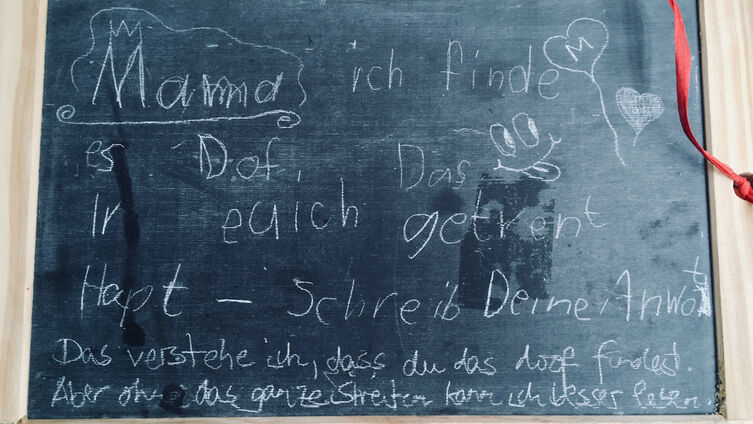 Mamma ich finde M
es Dof, Das
Ir euich getrent
Hapt – Schreib Deine Anwot
Das verstehe ich, dass du das doof findest.
Aber ohne das ganze Streiten kann ich besser leben.